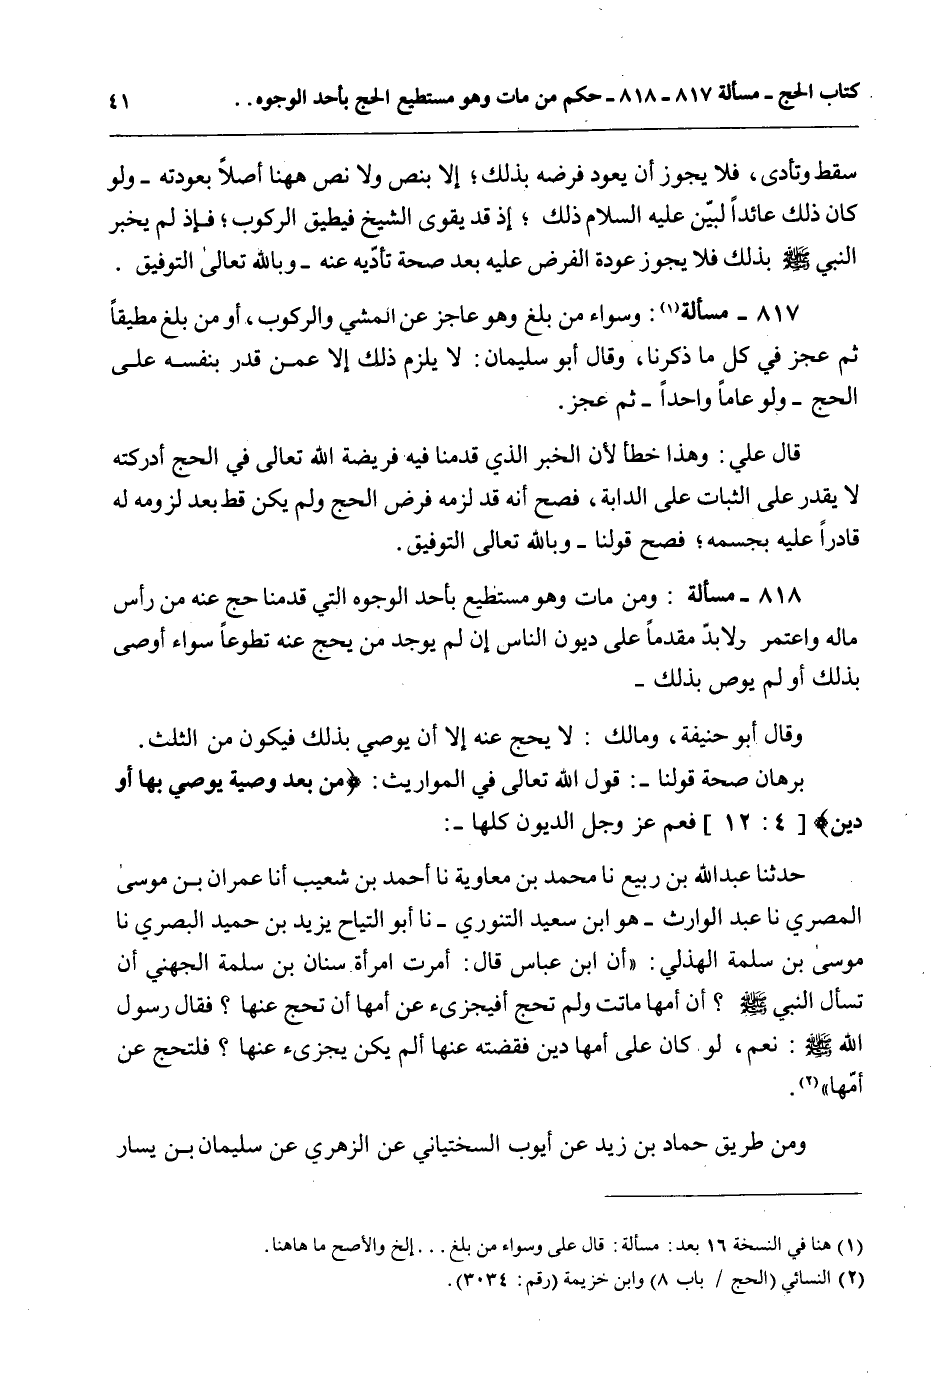 كتاب الحج ـ مسألة ٨١٧ ـ ٨١٨ ـ حكم من مات وهو مستطيع الحج بأحد الوجوه . . ٤١
سقط وتأدى، فلا يجوز أن يعود فرضه بذلك؛ إلا بنص ولا نص ههنا أصلاً بعودته ـ ولو
كان ذلك عائداً لبيّن عليه السلام ذلك ؛ إذ قد يقوى الشيخ فيطيق الركوب؛ فـإذ لم يخبر
النبي ﷺ بذلك فلا يجوز عودة الفرض عليه بعد صحة تأدّيه عنه ـ وبالله تعالىٰ التوفيق .
٨١٧ ـ مسألة(١): وسواء من بلغ وهو عاجز عن المشي والركوب، أو من بلغ مطيقاً
ثم عجز في كل ما ذكرنا، وقال أبو سليمان: لا يلزم ذلك إلا عمـن قدر بنفسـه علـى
الحج ـ ولو عاماً واحداً ـ ثم عجز.
قال علي: وهذا خطأ لأن الخبر الذي قدمنا فيه فريضة الله تعالى في الحج أدركته
لا يقدر على الثبات على الدابة، فصح أنه قد لزمه فرض الحج ولم يكن قط بعد لزومه له
قادراً عليه بجسمه؛ فصح قولنا ـ وبالله تعالى التوفيق.
٨١٨ ـ مسألة : ومن مات وهو مستطيع بأحد الوجوه التي قدمنا حج عنه من رأس
ماله واعتمر ولابدّ مقدماً على ديون الناس إن لم يوجد من يحج عنه تطوعاً سواء أوصى
بذلك أو لم يوص بذلك ـ
وقال أبو حنيفة، ومالك : لا يحج عنه إلا أن يوصي بذلك فيكون من الثلث.
برهان صحة قولنا ـ: قول الله تعالى في المواريث: ﴿من بعد وصية يوصي بها أو
دين﴾ [ ٤ : ١٢ ] فعم عز وجل الديون كلها ـ:
حدثنا عبدالله بن ربيع نا محمد بن معاوية نا أحمد بن شعيب أنا عمران بـن موسىٰ
المصري نا عبد الوارث ـ هو ابن سعيد التنوري ـ نا أبو التياح يزيد بن حميد البصري نا
موسىٰ بن سلمة الهذلي: «أن ابن عباس قال: أمرت امرأة سنان بن سلمة الجهني أن
تسأل النبي ﷺ ؟ أن أمها ماتت ولم تحج أفيجزىء عن أمها أن تحج عنها ؟ فقال رسول
الله ﷺ : نعم، لو كان على أمها دين فقضته عنها ألم يكن يجزىء عنها ؟ فلتحج عن
أمّها»(٢).
ومن طريق حماد بن زيد عن أيوب السختياني عن الزهري عن سليمان بـن يسار
(١) هنا في النسخة ١٦ بعد: مسألة: قال على وسواء من بلغ . . . إلخ والأصح ما هاهنا.
(٢) النسائي (الحج / باب ٨) وابن خزيمة (رقم: ٣٠٣٤).